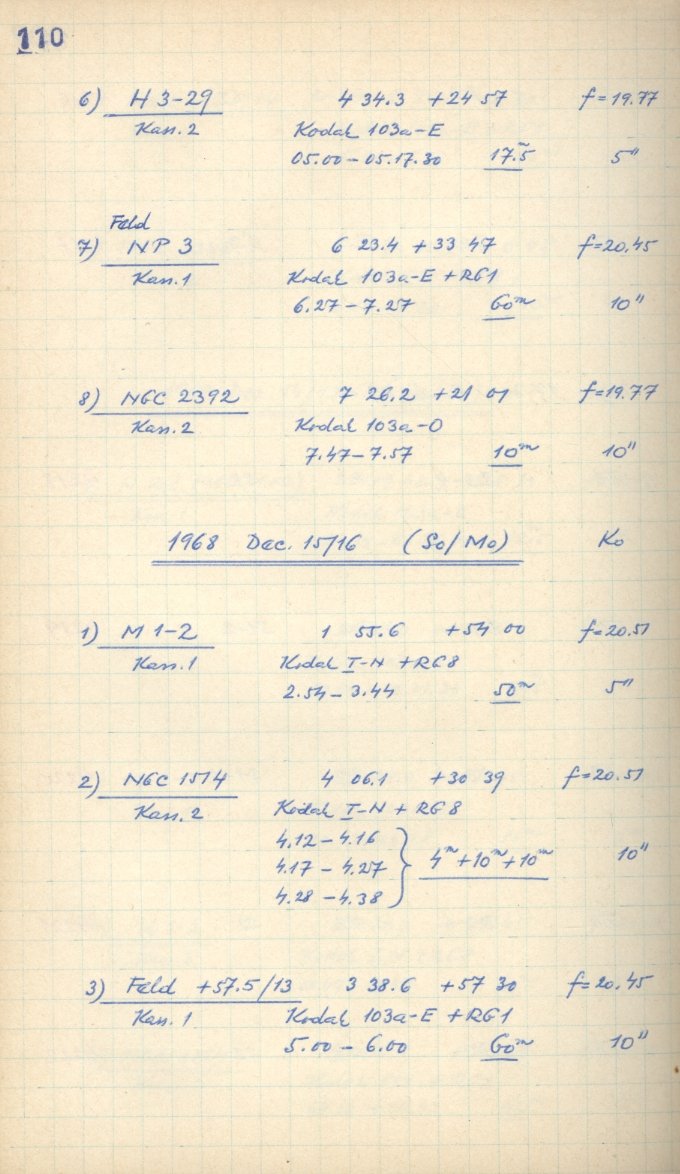 110
6) H 3-29 4 34.3 +24 57 f=19.77
Kass. 2 Kodak 103a-E
05.00-05.17.30 17.5 5"
Feld
7) NP 3 6 23.4 +33 47 f=20.45
Kass. 1 Kodak 103a-E +RG1
6.27-7.27 60m 10"
8) NGC 2392 7 26.2 +21 01 f=19.77
Kass. 2 Kodak 103a-O
7.47-7.57 10m 10"
1968 Dec. 15/16 (So/Mo) Ko
1) M 1-2 1 55.6 +54 00 f=20.51
Kass. 1 Kodak I-N +RG8
2.54-3.44 50m 5"
2) NGC 1514 4 06.1 +30 39 f=20.51
Kass. 2 Kodak I-N + RG8
4.12-4.16
4.17-4.27 } 4m+10m+10m 10"
4.28-4.38
3) Feld +57.5/13 3 38.6 +57 30 f=20.45
Kass. 1 Kodak 103a-E +RG1
5.00-6.00 60m 10"